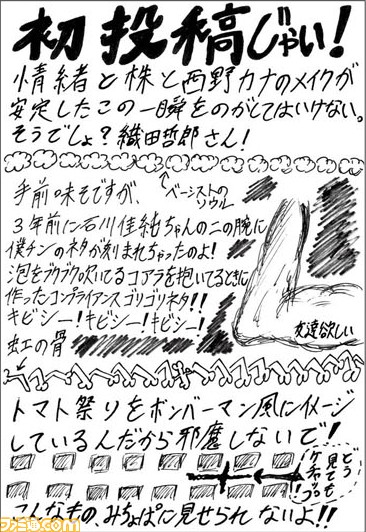 初投稿じゃい!
情緒と株と西野カナのメイクが
安定したこの一瞬をのがしてはいけない。
そうでしょ?織田哲郎さん!
↑ベーシストの
ソウル
手前味そですが、
3年前に石川佳純ちゃんの二の腕に
僕チンのネタが刻まれちゃったのよ!
泡をブクブク吹いてるコアラを抱いてるときに
作ったコンプライアンスゴリゴリネタ!!
キビシー!キビシー!キビシー!
友達欲しい
虹の骨
トマト祭りをボンバーマン風にイメージ
しているんだから邪魔しないで!
どう
見ても
ケチャップ。
こんなもの、みちょぱに見せられないよ!!
ファミ通.com